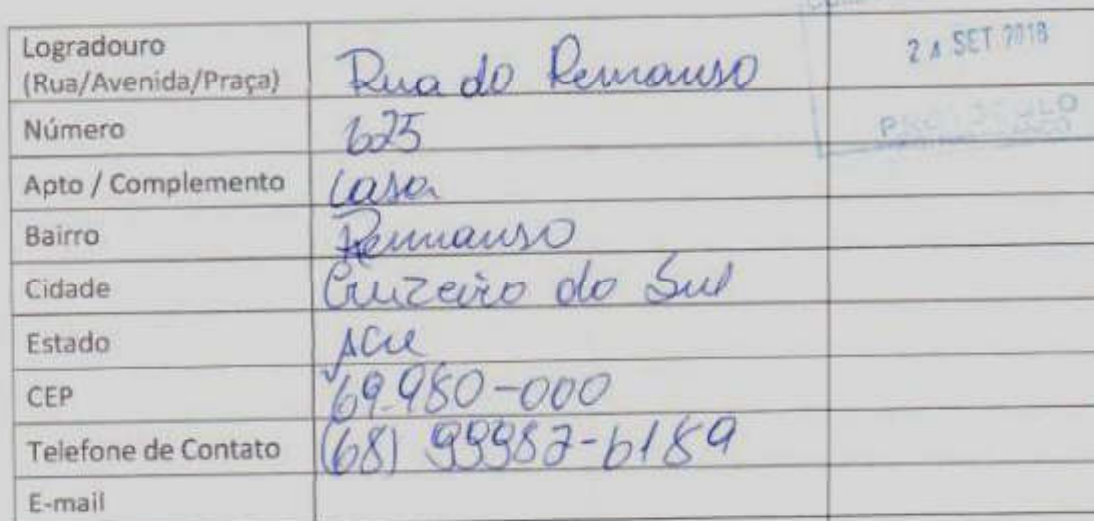 Logradouro
(Rua/Avenida/Praça) Rua do Remanso
24 SET 2018
Número 625
PROTOCOLO
Apto / Complemento Casa
Bairro Remanso
Cidade Cruzeiro do Sul
Estado Acre
CEP 69.980-000
Telefone de Contato (68) 99987-6189
E-mail